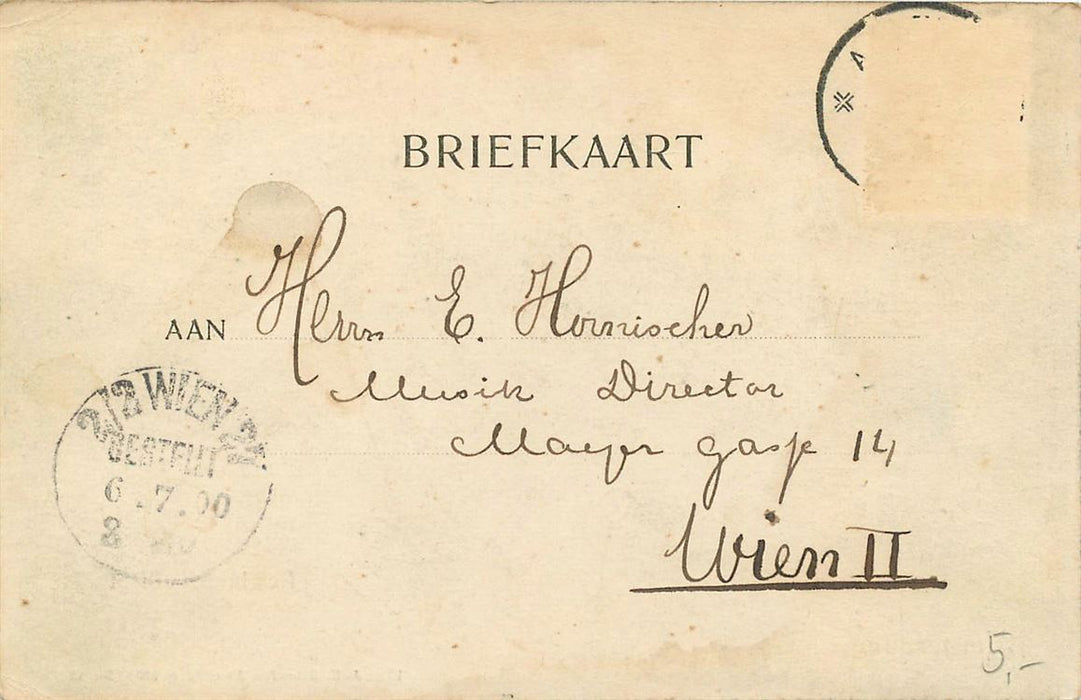 BRIEFKAART
AAN Herrn E. Hornischer
Musik Director
Mayer gasse 14
Wien II
2/2 WIEN
BESTELLT
6.7.00
5,-